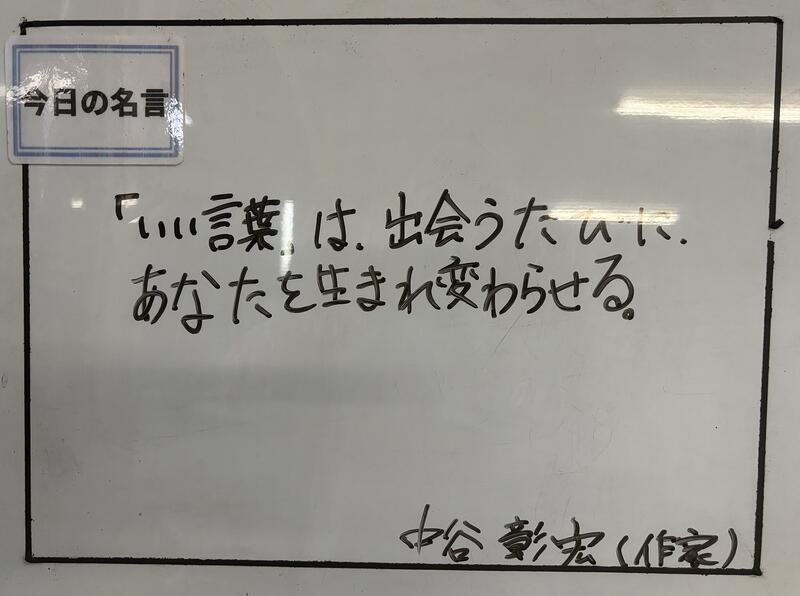 今日の名言
「いい言葉」は、出会うたびに、
あなたを生まれ変わらせる。
中谷彰宏(作家)